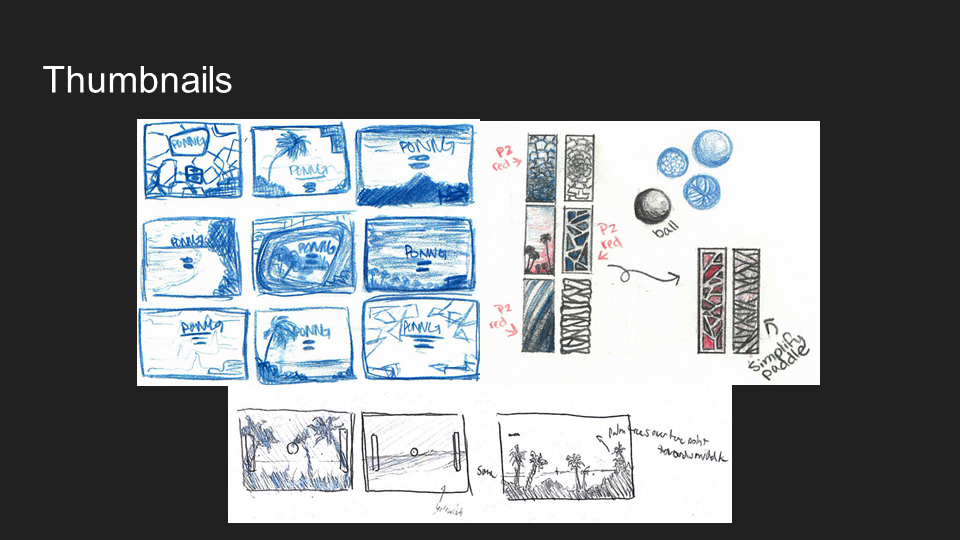 Thumbnails
PONNG
PONNG
PONNG
PONNG
PONNG
PONNG
PONNG
PONNG
PONNG
P2
red
P2
red
P2
red
ball
simplify
paddle
palm trees over